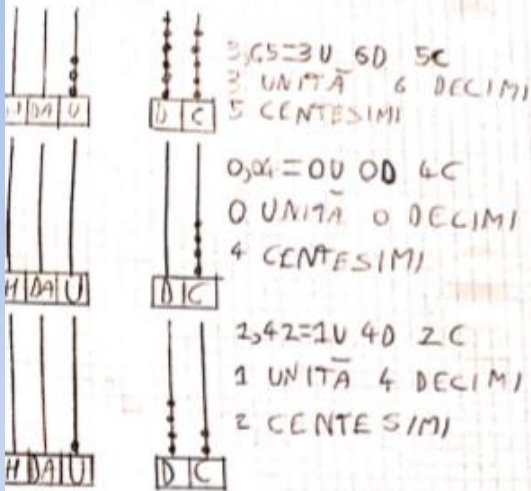 3,65=3U 6D 5C
3 UNITÀ 6 DECIMI
5 CENTESIMI
DA U D C
0,04=0U 0D 4C
0 UNITÀ 0 DECIMI
4 CENTESIMI
H DA U D C
1,42=1U 4D 2C
1 UNITÀ 4 DECIMI
2 CENTESIMI
H DA U D C